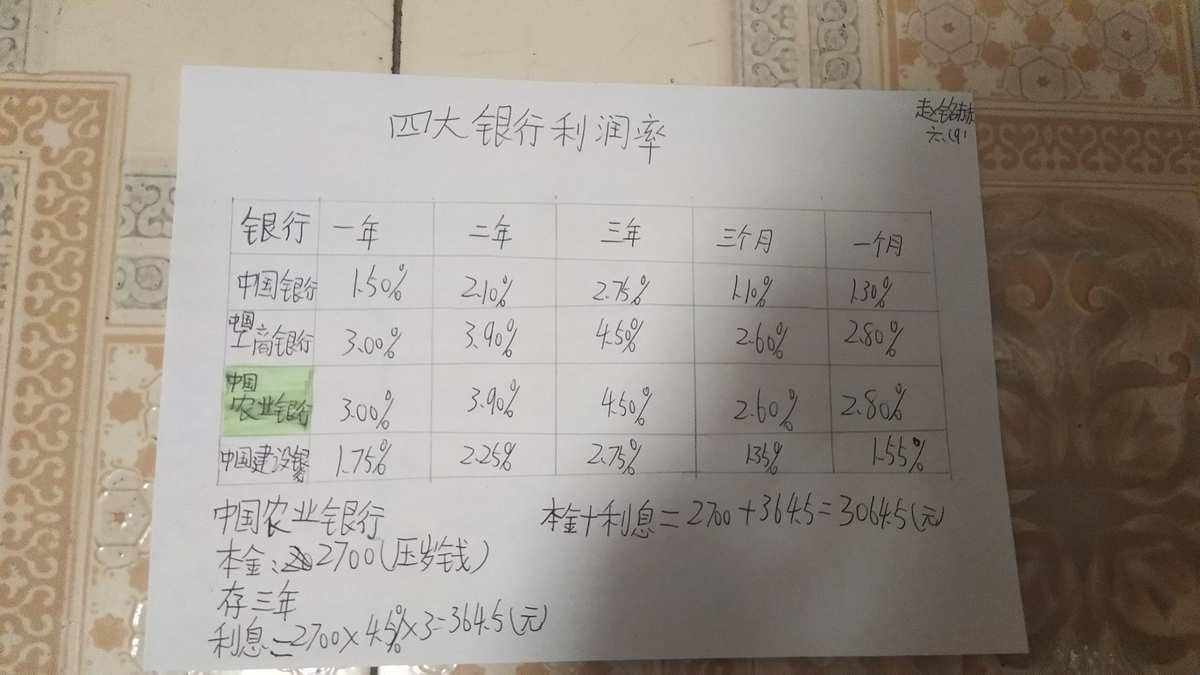 四大银行利润率
六(9)
银行 一年 二年 三年 三个月 一个月
中国银行 1.50% 2.10% 2.75% 1.10% 1.30%
中国工商银行 3.00% 3.90% 4.50% 2.60% 2.80%
中国农业银行 3.00% 3.90% 4.50% 2.60% 2.80%
中国建设银 1.75% 2.25% 2.75% 1.35% 1.55%
中国农业银行
本金:2700(压岁钱)
存三年
利息=2700×4.5%×3=364.5(元)
本金+利息=2700+364.5=3064.5(元)